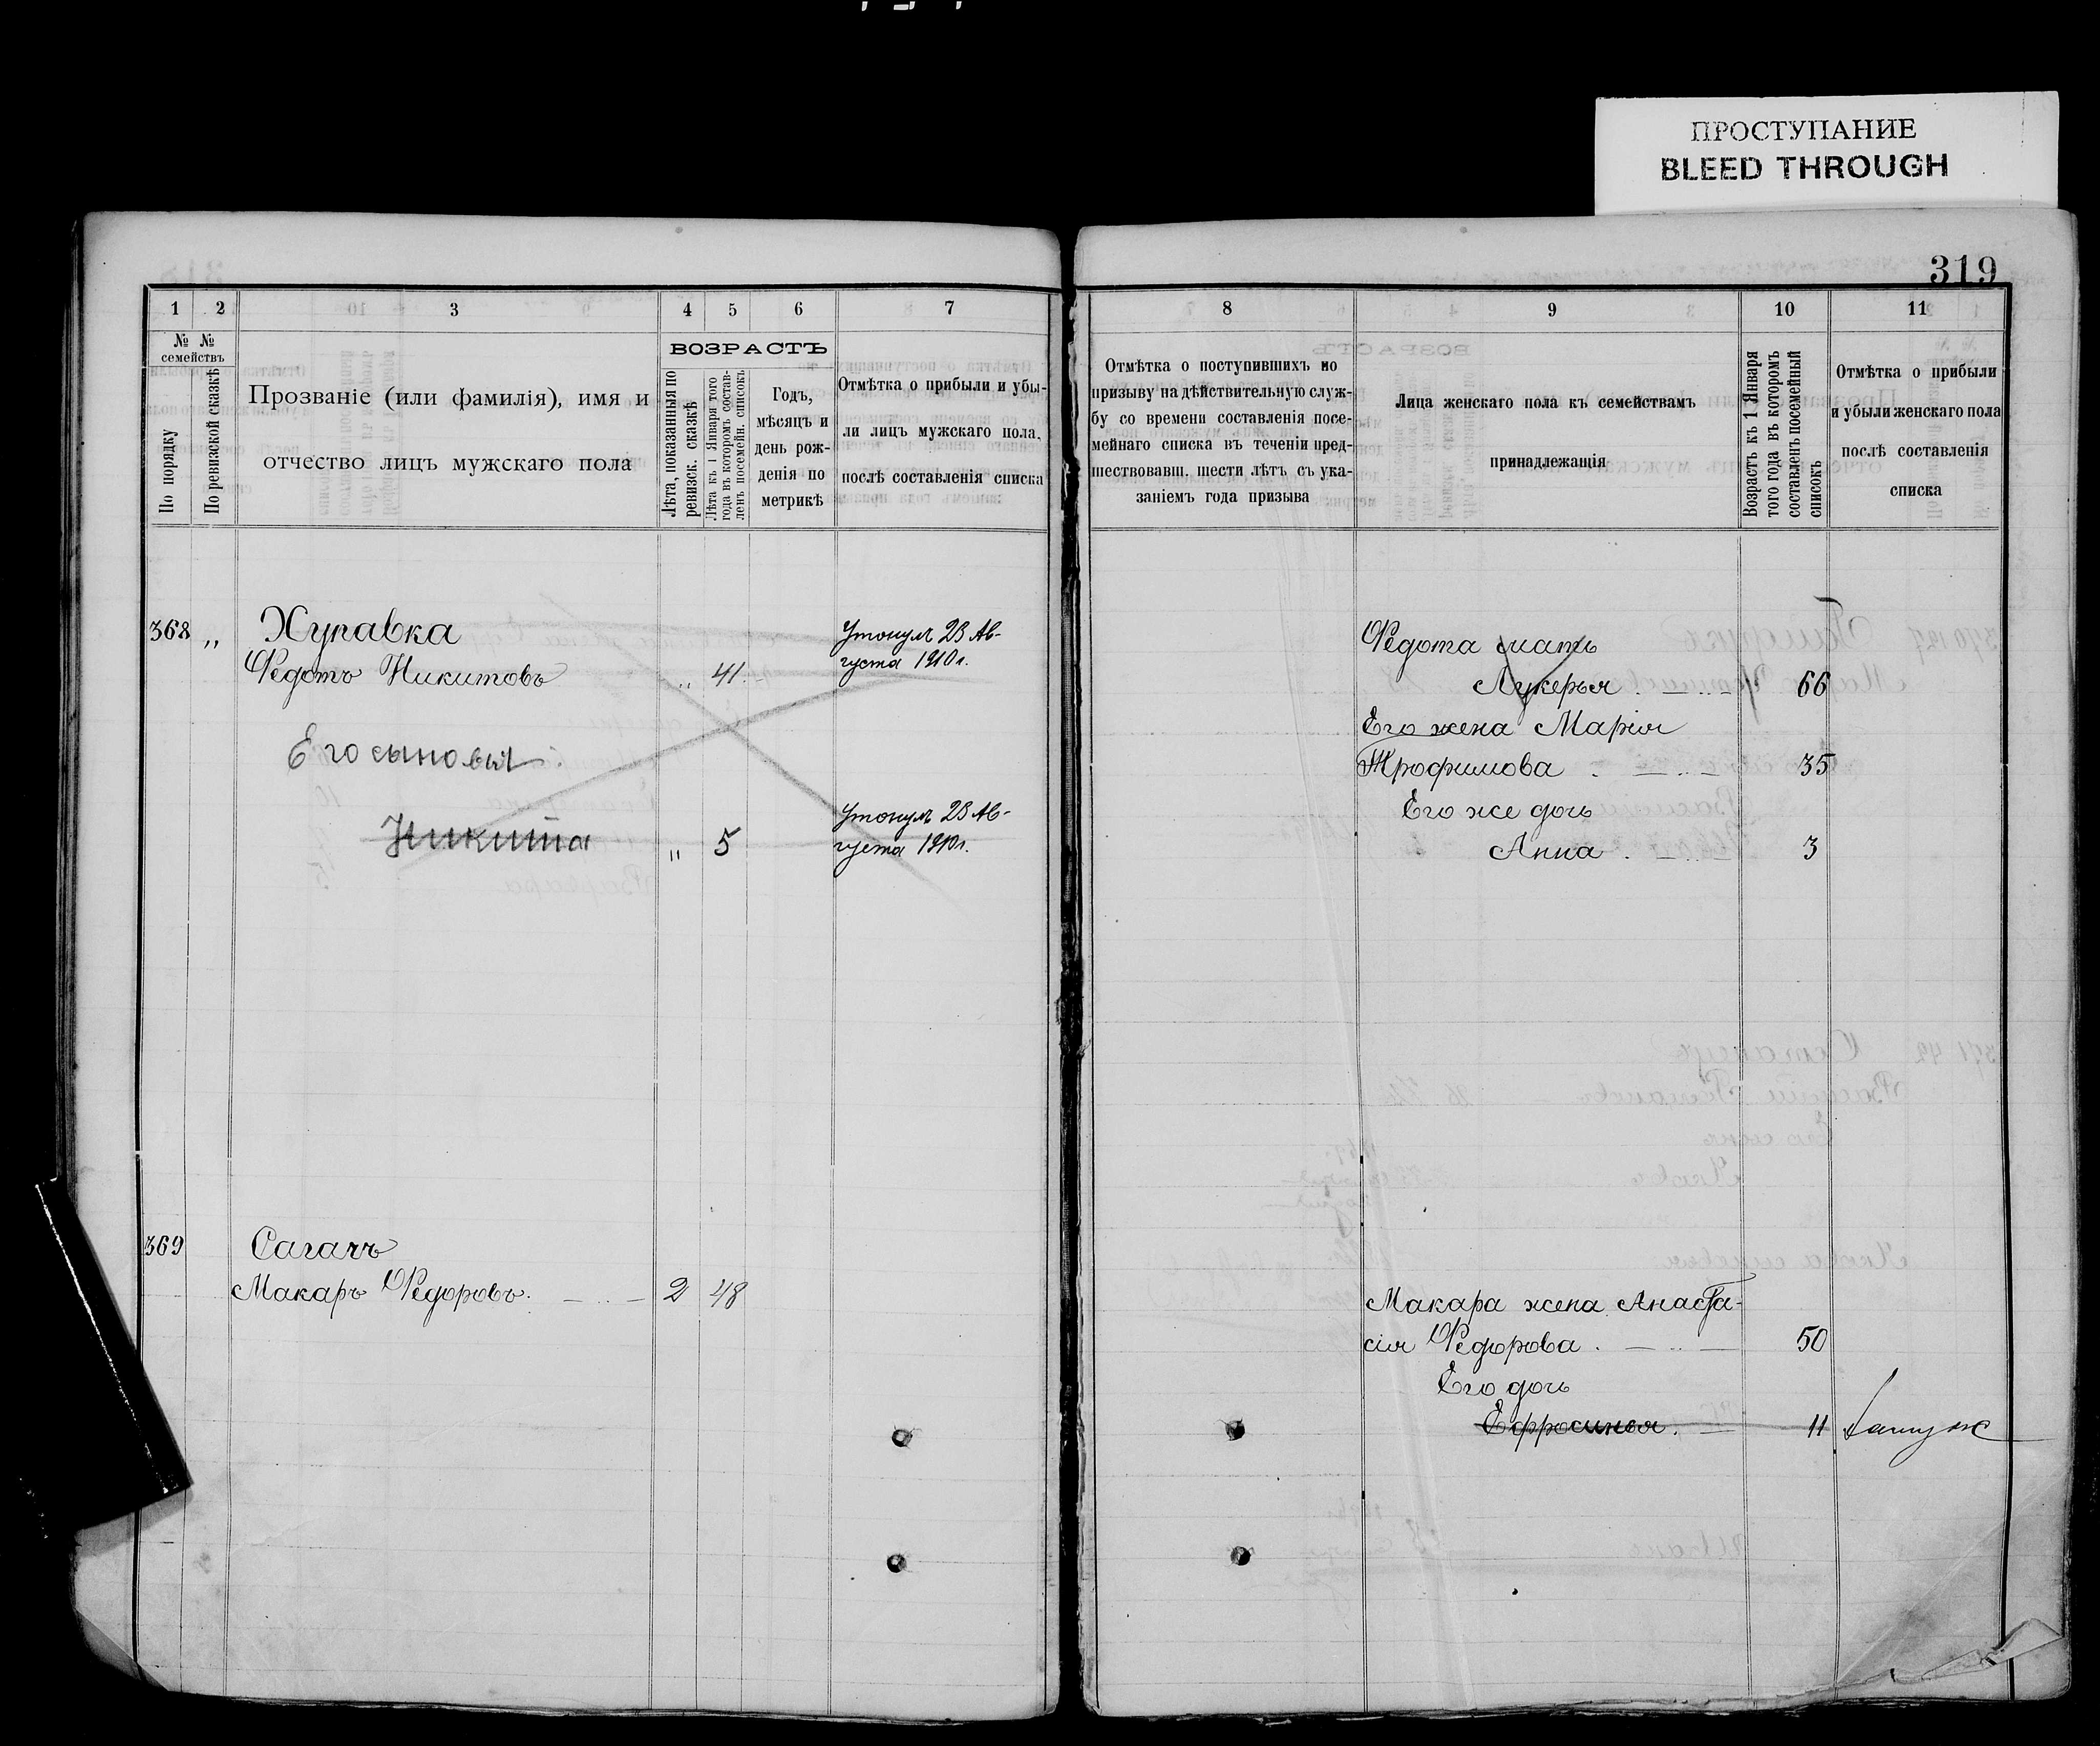 ПРОСТУПАНИЕ
BLEED THROUGH
319
1 2 3 4 5 6 7
№ №
семействъ
По порядку
По ревизской сказкѣ
Прозваніе (или фамилія), имя и
отчество лицъ мужскаго пола
ВОЗРАСТЪ
Лѣта, показанныя по
ревизск. сказкѣ
Лѣта къ 1 Января того
года въ которомъ состав-
ленъ посемейн. списокъ
Годъ,
мѣсяцъ и
день рож-
денія по
метрикѣ
Отмѣтка о прибыли и убы-
ли лицъ мужскаго пола,
послѣ составленія списка
368 „ Журавка
Федотъ Никитовъ „ 41
Утонул 23 Ав-
густа 1910 г.
Его сыновья:
Никита „ 5
Утонул 23 Ав-
густа 1910 г.
369 Сагачъ
Макаръ Федоровъ. 2 48
8 9 10 11
Отмѣтка о поступившихъ по
призыву на дѣйствительную служ-
бу со времени составленія посе-
мейнаго списка въ теченіи пред-
шествовавш. шести лѣтъ съ ука-
заніемъ года призыва
Лица женскаго пола къ семействамъ
принадлежащія
Возрастъ къ 1 Января
того года въ которомъ
составленъ посемейный
списокъ
Отмѣтка о прибыли
и убыли женскаго пола
послѣ составленія
списка
Федота мать
Лукерья 66
Его жена Марія
Трофимова 35
Его же дочь
Анна 3
Макара жена Анаста-
сія Федорова 50
Его дочь
Ефросинья 11 Замуж